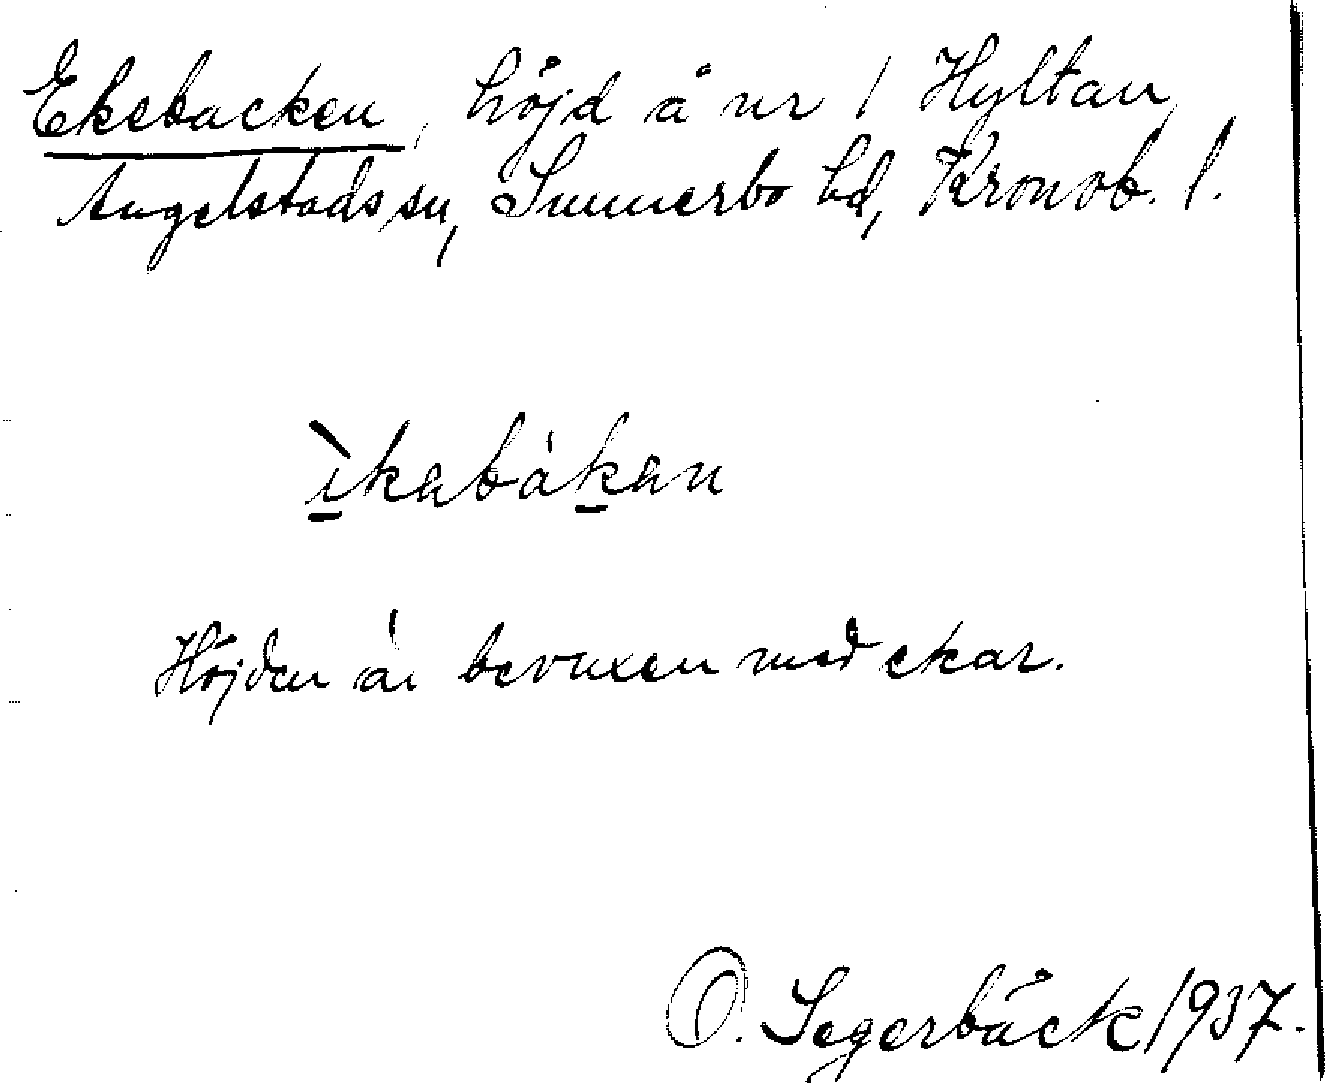 Ekebacken, höjd å nr 1 Hyltan,
Angelstads sn, Sunnerbo hd, Kronob. l.
ìkabákan
Höjden är bevuxen med ekar.
O. Segerbäck 1937.